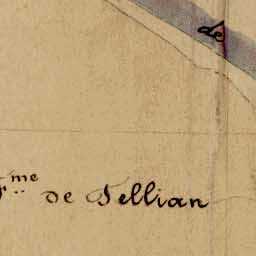 de
F.me de Tellian